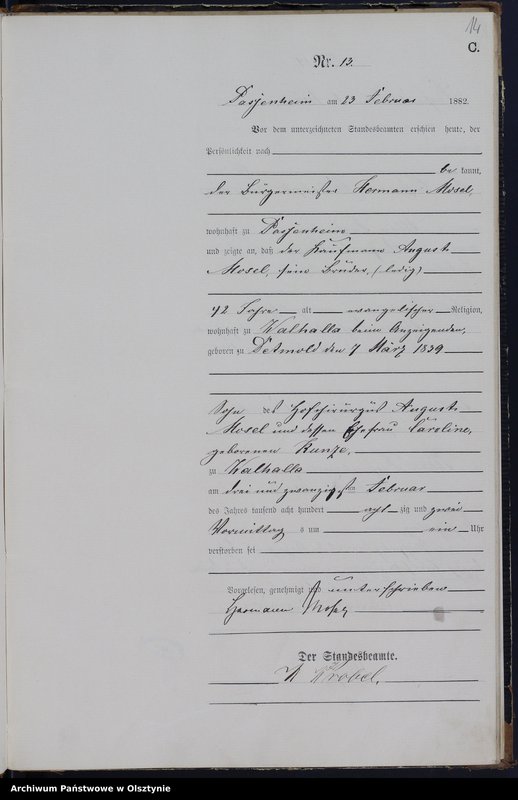 14
C.
Nr. 13.
Passenheim am 23 Februar 1882.
Vor dem unterzeichneten Standesbeamten erschien heute, der
Persönlichkeit nach
be kannt,
der Bürgermeister Hermann Mosel,
wohnhaft zu Passenheim
und zeigte an, daß der Kaufmann August
Mosel, sein Bruder, (ledig)
42 Jahre alt evangelischer Religion,
wohnhaft zu Walhalla beim Anzeigenden,
geboren zu Detmold den 7 März 1839
Sohn des Hofchirurgus August
Mosel und dessen Ehefrau Caroline,
geborenen Kunze,
zu Walhalla
am drei und zwanzigsten Februar
des Jahres tausend acht hundert acht zig und zwei
Vormittag s um ein Uhr
verstorben sei
Vorgelesen, genehmigt und unterschrieben
Hermann Mosel
Der Standesbeamte.
Krobel.
Archiwum Państwowe w Olsztynie